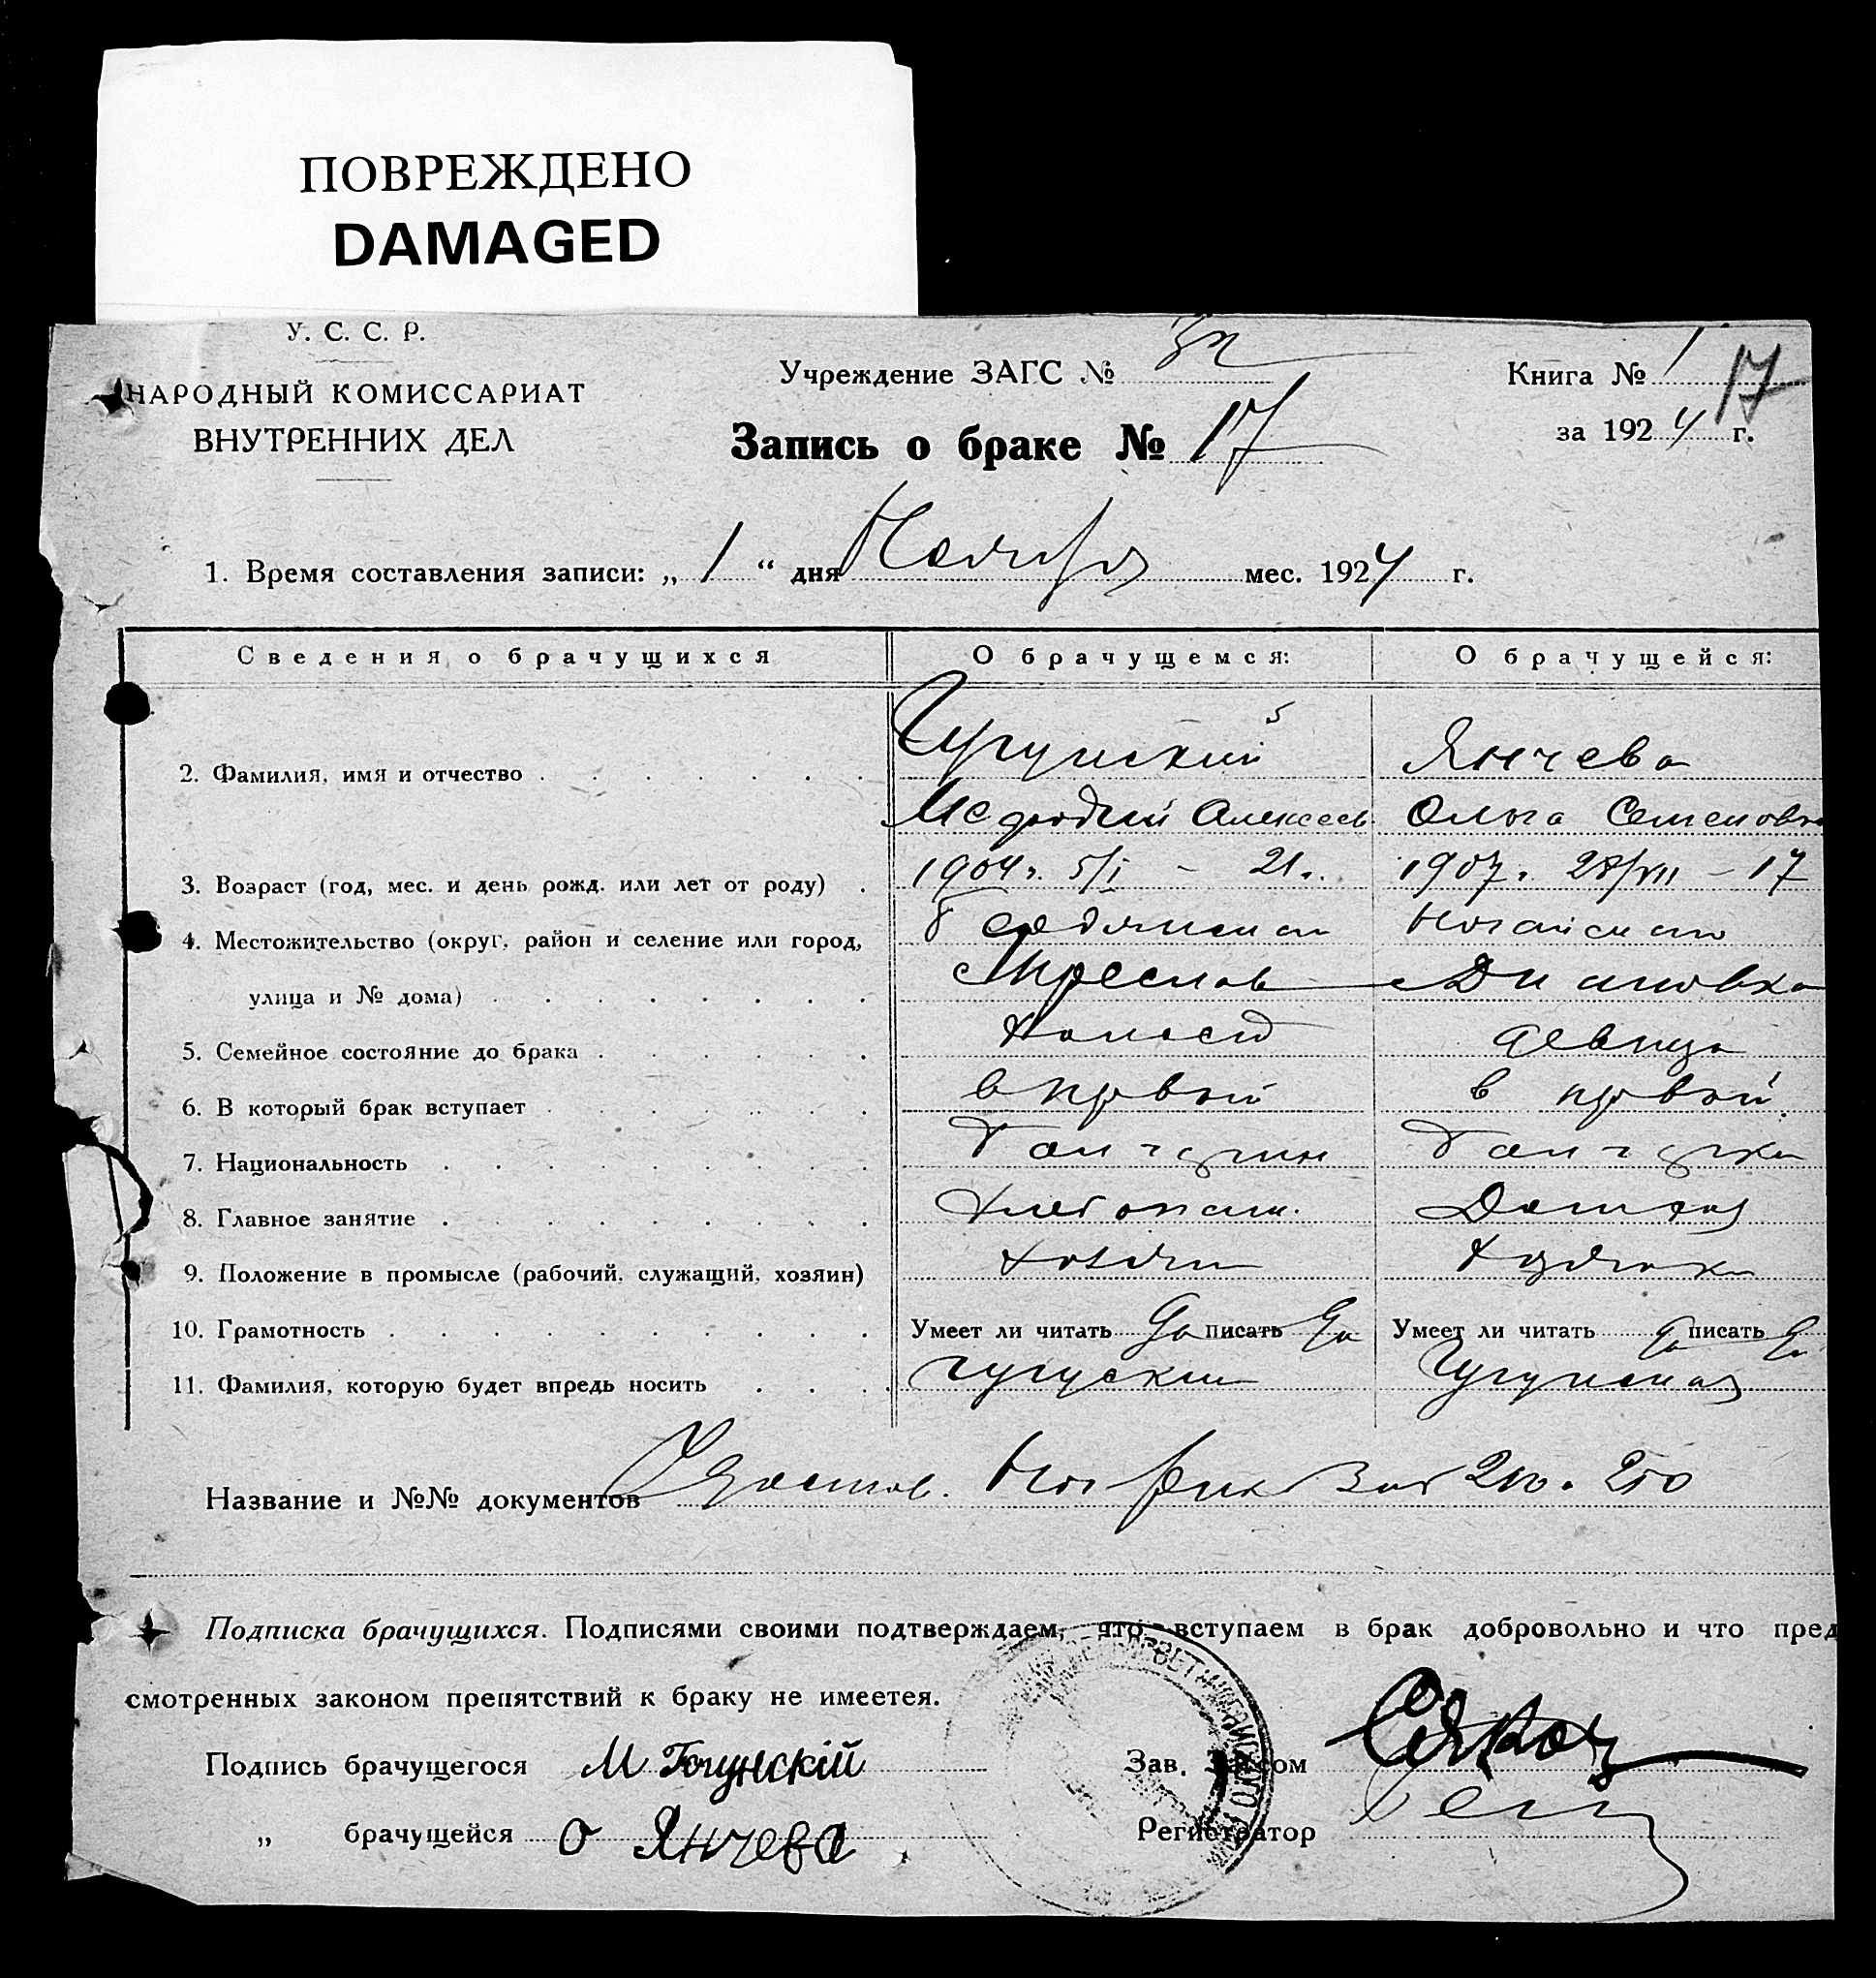 ПОВРЕЖДЕНО
DAMAGED
У. С. С. Р.
НАРОДНЫЙ КОМИССАРИАТ
ВНУТРЕННИХ ДЕЛ
Учреждение ЗАГС №
Запись о браке № 17
Книга № 1
17
за 1924 г.
1. Время составления записи: „ 1 “ дня Ноября мес. 1924 г.
Сведения о брачущихся О брачущемся: О брачущейся:
2. Фамилия, имя и отчество Чугунский Янчева
Мефодий Алексеев Ольга Семеновна
3. Возраст (год, мес. и день рожд. или лет от роду) 1904 г. 5/I - 21 г. 1907 г. 28/VII - 17
4. Местожительство (округ, район и селение или город, Ногайский
улица и № дома) с Диановка
5. Семейное состояние до брака Холост девица
6. В который брак вступает в првый в првый
7. Национальность болгарин болгарка
8. Главное занятие Хлебопаш. Домаш
9. Положение в промысле (рабочий, служащий, хозяин) хозяин хозяйка
10. Грамотность Умеет ли читать да писать да Умеет ли читать да писать да
11. Фамилия, которую будет впредь носить Чугунская
Название и №№ документов Удостов. Ног Рик За № 250
Подписка брачущихся. Подписями своими подтверждаем, что вступаем в брак добровольно и что пред
смотренных законом препятствий к браку не имеетея.
Подпись брачущегося М
Зав. Загсом
„ брачущейся О Янчева
Регистратор